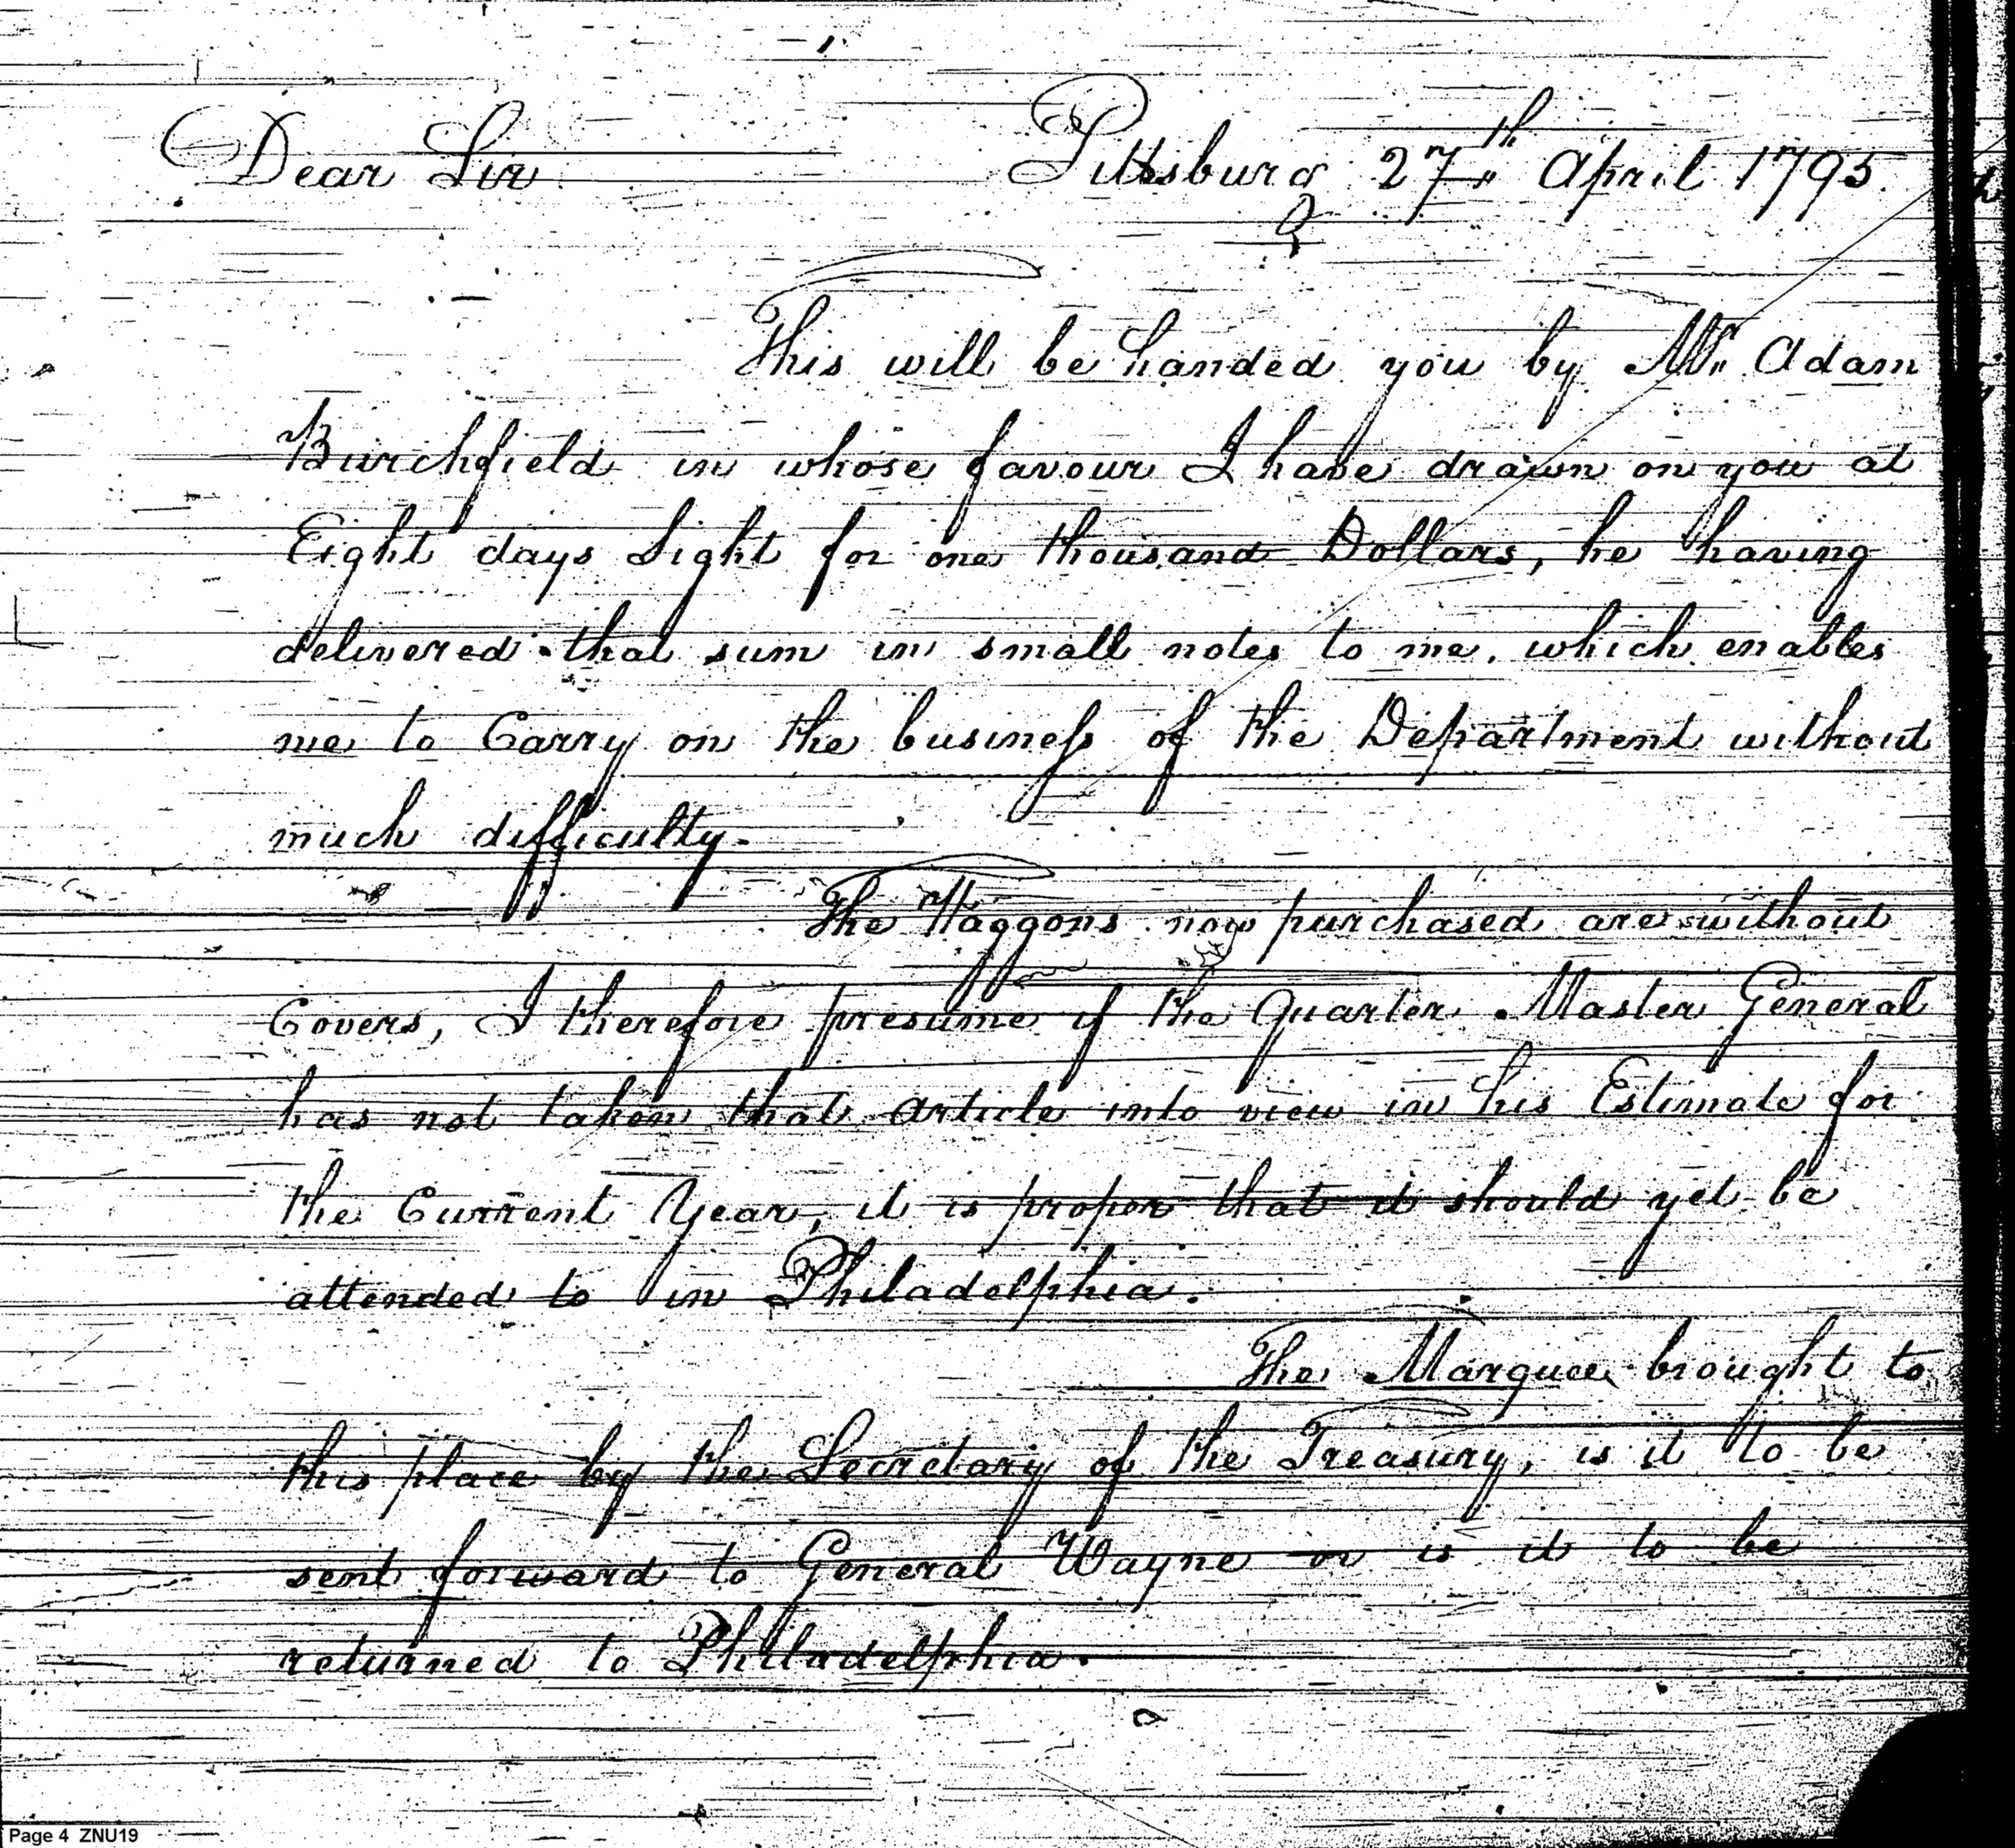 Dear Sir Pittsburg 27th April 1795.
This will be handed you by Mr. Adam
Burchfield in whose favour I have drawn on you at
Eight days Sight for one thousand Dollars, he having
delivered that sum in small notes to me, which enables
me to Carry on the business of the Department without
much difficulty.
The Waggons now purchased are without
Covers, I therefore presume if the Quarter Master General
has not taken that article into view in his Estimate for
the Current Year, it is proper that it should yet be
attended to in Philadelphia.
The Marquee brought to
this place by the Secretary of the Treasury, is it to be
sent forward to General Wayne or is it to be
returned to Philadelphia.
Page 4 ZNU19